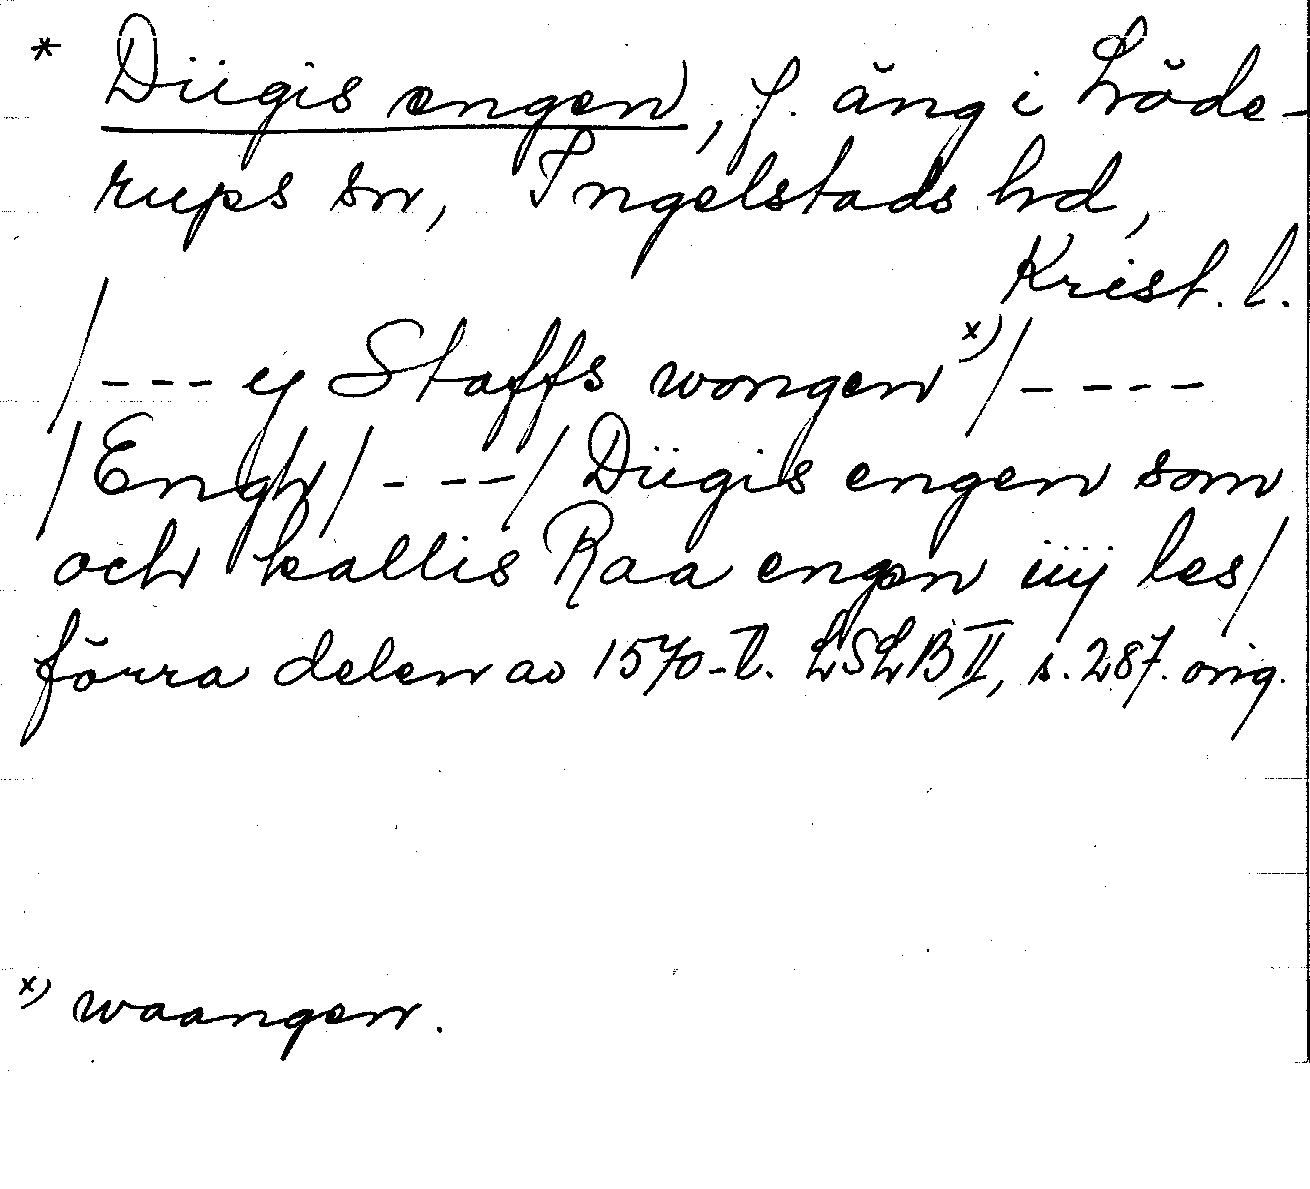 * Diigis engen, f. äng i Löde-
rups sn, Ingelstads hd,
Krist. l.
/--- ij Staffs wongen x)/----
/Engh/---/ Diigis engen som
och kallis Raa engen iiij les/
förra delen av 1570-t. LSLB II, s. 287. orig.
x) waangen.